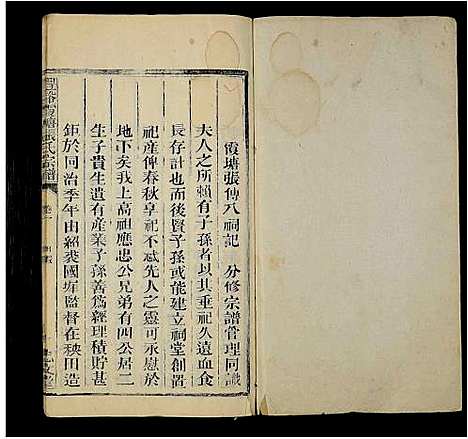 霞塘張傳八祠記 分修宗譜管理同識
夫人之所賴有子孫者以其垂祀久遠血食
長存計也而後賢子孫或能建立祠堂創置
祀產俾春秋享祀不忒先人之靈可永慰於
地下矣我上高祖應忠公兄弟有四公居二
生子貴生遺有產業子孫善爲經理積貯甚
鉅於同治季年由紹裘國墀監督在秧田造
醴陵霞塘張氏宗譜